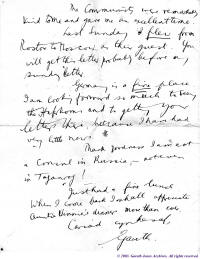 The Community was remarkably
kind to me and gave me an excellent time.
Last Sunday I flew from
Rostov to Moscow as their guest. You
will get this letter probably before my
Sunday letter.
Germany is a fine place
I am looking forward so much to seeing
the Haferkorns and to getting your
letters there, because I have had
very little news
Thank goodness I am not
a Consul in Russia, — not even
in Taganrog!
Just had a fine lunch
When I come back I shall appreciate
Auntie Winnie's dinner more than ever.
Cariad cynhesaf,
Gareth
© 2005 Gareth Jones Archives. All rights reserved.